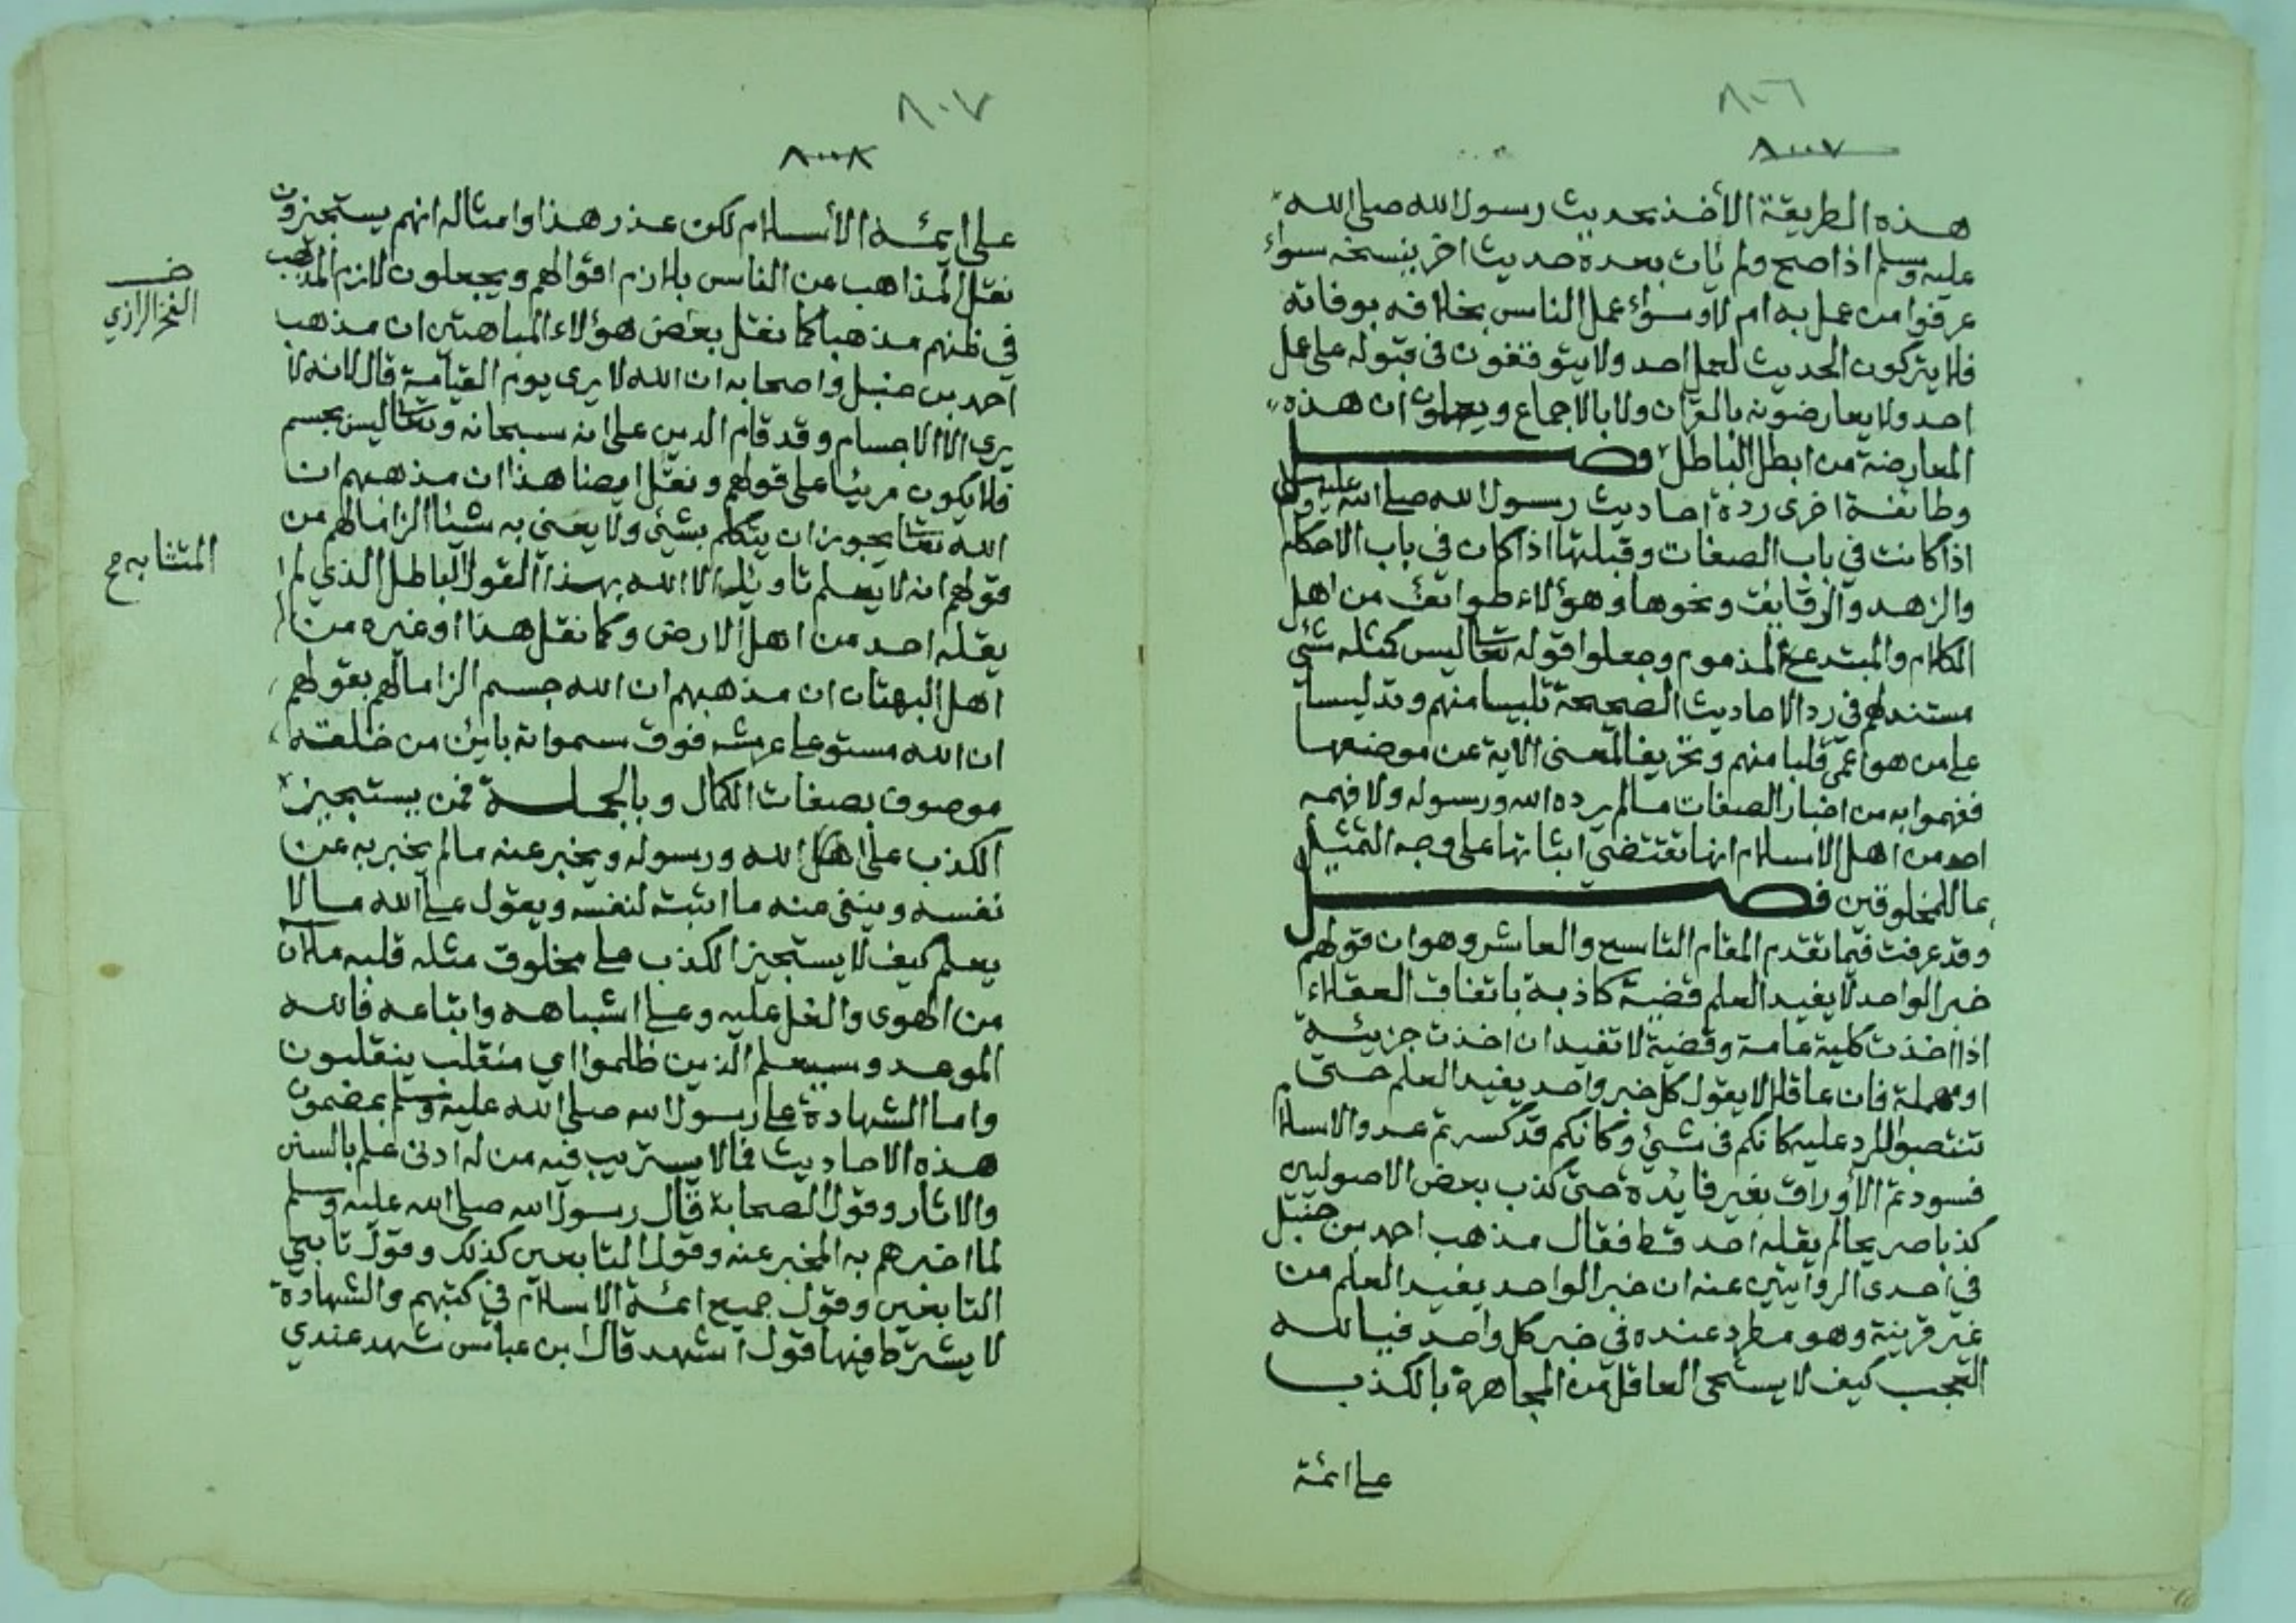 ٨٠٦
٨٠٠٧
هذه الطريقة الأخذ بحديث رسول الله صلى الله
عليه وسلم اذا صح ولم يأت بعده حديث اخر ينسخه سواء
عرفوا من عمل به ام لا وسواء عمل الناس بخلافه بوفاته
فلا يتركون الحديث لعمل احد ولا يتوقفون في قبوله على عمل
احد ولا يعارضونه بالقرآن ولا بالاجماع ويعلمون ان هذه
المعارضة من ابطل الباطل فصل
وطائفة اخرى ردة احاديث رسول الله صلى الله عليه وسلم
اذا كانت في باب الصفات وقبلتها اذا كان في باب الاحكام
والزهد والرقايق ونحوها وهؤلاء طوائف من اهل
الكلام والمبتدع المذموم وجعلوا قوله تعالى ليس كمثله شئ
مستندهم في رد الاحاديث الصحيحة تلبيسا منهم وتدليسا
على من هو اعمى قلبا منهم وتحريفا لمعنى الاية عن موضعها
ففهموا به من اخبار الصفات مالم يرده الله ورسوله ولا فهمه
احد من اهل الاسلام انها تقتضي اثباتها على وجه التمثيل
بما للمخلوقين فصل
وقد عرفت فيما تقدم المقام التاسع والعاشر وهو ان قولهم
خبر الواحد لا يفيد العلم قضية كاذبة باتفاق العقلاء
اذا اخذت كلية عامة وقضية لا تفيد ان اخذت جزيئة
او مهملة فان عاقلا لا يقول كل خبر واحد يفيد العلم حتى
تنتصبوا للرد عليه كانكم في شئ وكانكم قد كسرتم عدو الاسلام
فسودتم الأوراق بغير فايدة حتى كذب بعض الاصوليين
كذبا صريحا لم يقله احد قط فقال مذهب احمد بن حنبل
في احدى الروايتين عنه ان خبر الواحد يفيد العلم من
غير قرينة وهو مطرد عنده في خبر كل واحد فيالله
العجب كيف لا يستحى العاقل من المجاهرة بالكذب
على ائمة
٨٠٧
٨٠٠٨
على ايمة الأسلام لكن عذر هذا وامثاله انهم يستجيزون
نقل المذاهب عن الناس بلازم اقوالهم ويجعلون لازم المذهب
في ظنهم مذهبا كما نقل بعض هؤلاء المباهتين ان مذهب
احمد بن حنبل واصحابه ان الله لا يرى يوم القيامة قال لانه لا
يرى الا الاجسام وقد قام الدين على انه سبحانه وتعالى ليس بجسم
فلا يكون مرئيا على قولهم ونقل ايضا هذا ان مذهبهم ان
الله تعالى يجوز ان يتكلم بشئ ولا يعنى به شيئا الزاما لهم من
قولهم انه لا يعلم تاويله الا الله بهذا القول الباطل الذي لم
يقله احد من اهل الارض وكما نقل هذا او غيره من
اهل البهتان ان مذهبهم ان الله جسم الزاما لهم بقولهم
ان الله مستو على عرشه فوق سمواته باين من خلقه
موصوف بصفات الكمال وبالجملة فمن يستجيز
الكذب على الله ورسوله ويخبر عنه مالم يخبر به عن
نفسه وينفى عنه ما اثبته لنفسه ويقول على الله مالا
يعلم كيف لا يستجيز الكذب على مخلوق مثله قلبه ملان
من الهوى والغل عليه وعلى اشباهه واتباعه فالله
الموعد وسيعلم الذين ظلموا اي منقلب ينقلبون
واما الشهادة على رسول الله صلى الله عليه وسلم بمضمون
هذه الاحاديث فمالا يستريب فيه من له ادنى علم بالسنن
والاثار وقول الصحابة قال رسول الله صلى الله عليه وسلم
لما اخبرهم به المخبر عنه وقول التابعين كذلك وقول تابعي
التابعين وقول جميع ائمة الاسلام في كتبهم والشهادة
لا يشترط فيها قول اشهد قال ابن عباس شهد عندي
الفخر الرازي
المتشابه